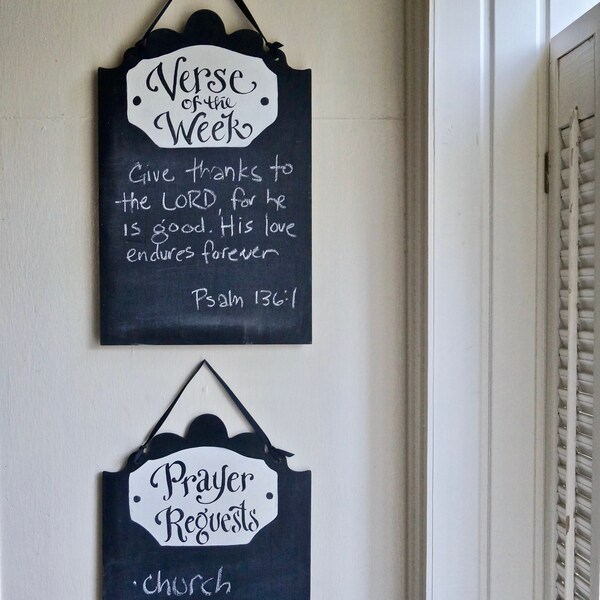 Verse
of the
Week
Give thanks to
the LORD, for he
is good. His love
endures forever
Psalm 136:1
Prayer
Requests
· church